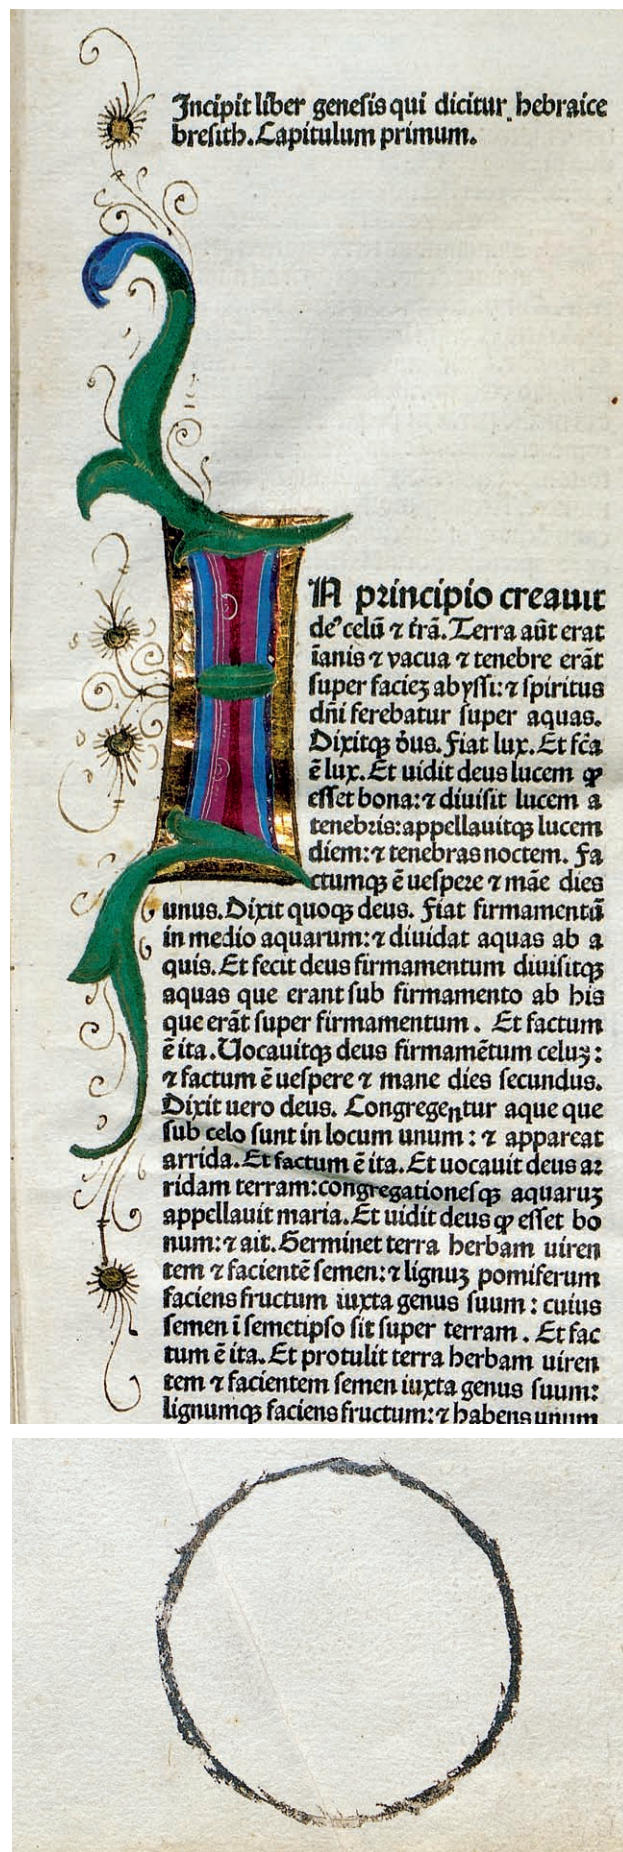 Incipit liber genesis qui dicitur hebraice
bresith. Capitulum primum.
IN principio creauit
deꝰ celū ⁊ t̄rā. Terra aūt erat
īanis ⁊ vacua ⁊ tenebre erāt
super faciez abyssi: ⁊ spiritus
dn̄i ferebatur super aquas.
Dixitqꝫ de᷒us. Fiat lux. Et fc̄a
ē lux. Et uidit deus lucem ꝙ
esset bona: ⁊ diuisit lucem a
tenebris: appellauitqꝫ lucem
diem: ⁊ tenebras noctem. Fa
ctumqꝫ ē uespere ⁊ māe dies
unus. Dixit quoqꝫ deus. Fiat firmamentū
in medio aquarum: ⁊ diuidat aquas ab a
quis. Et fecit deus firmamentum diuisitqꝫ
aquas que erant sub firmamento ab his
que erāt super firmamentum. Et factum
ē ita. Uocauitqꝫ deus firmamētum celuꝫ:
⁊ factum ē uespere ⁊ mane dies secundus.
Dixit uero deus. Congregentur aque que
sub celo sunt in locum unum: ⁊ appareat
arrida. Et factum ē ita. Et uocauit deus ar
ridam terram: congregationesqꝫ aquaruꝫ
appellauit maria. Et uidit deus ꝙ esset bo
num: ⁊ ait. Germinet terra herbam uiren
tem ⁊ facientē semen: ⁊ lignuꝫ pomiferum
faciens fructum iuxta genus suum: cuius
semen ī semetipso sit super terram. Et fac
tum ē ita. Et protulit terra herbam uiren
tem ⁊ facientem semen iuxta genus suum:
lignumqꝫ faciens fructum: ⁊ habens unum